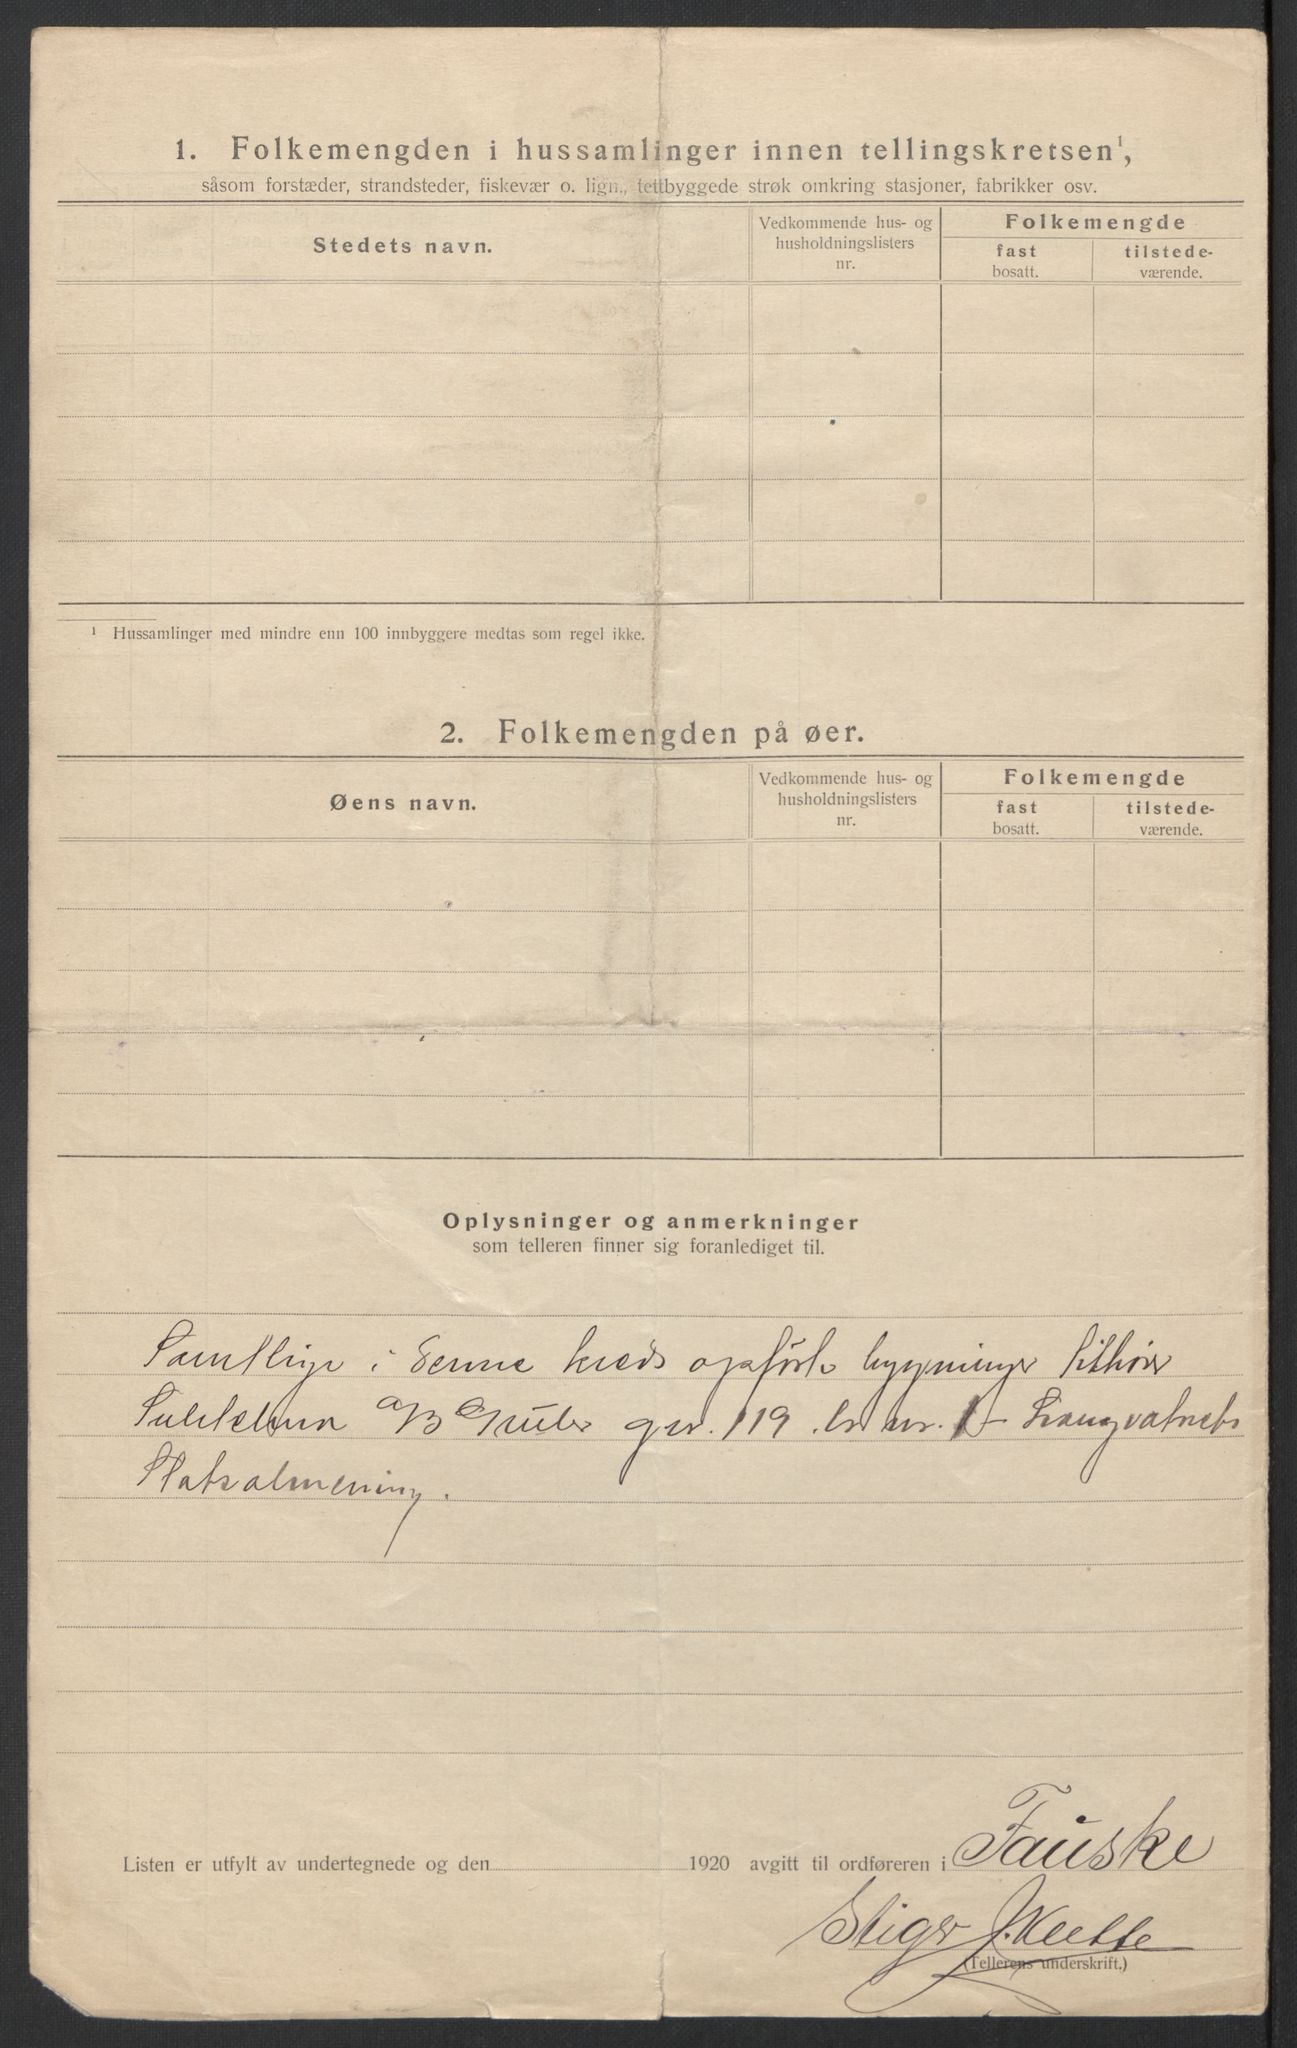 1. Folkemengden i hussamlinger innen tellingskretsen¹,
såsom forstæder, strandsteder, fiskevær o. lign., tettbyggede strøk omkring stasjoner, fabrikker osv.
Stedets navn.
Vedkommende hus- og
husholdningslisters
nr.
Folkemengde
fast
bosatt.
tilstede-
værende.
¹ Hussamlinger med mindre enn 100 innbyggere medtas som regel ikke.
2. Folkemengden på øer.
Øens navn.
Vedkommende hus- og
husholdningslisters
nr.
Folkemengde
fast
bosatt.
tilstede-
værende.
Oplysninger og anmerkninger
som telleren finner sig foranlediget til.
Samtlige i denne kreds opførte bygninger tilhører
Sulitelma A/B Gruber gnr. 119 br. nr. 1 - Langvatnets
Statsalmening.
Listen er utfylt av undertegnede og den 1920 avgitt til ordføreren i Fauske
Stiger
(Tellerens underskrift.)